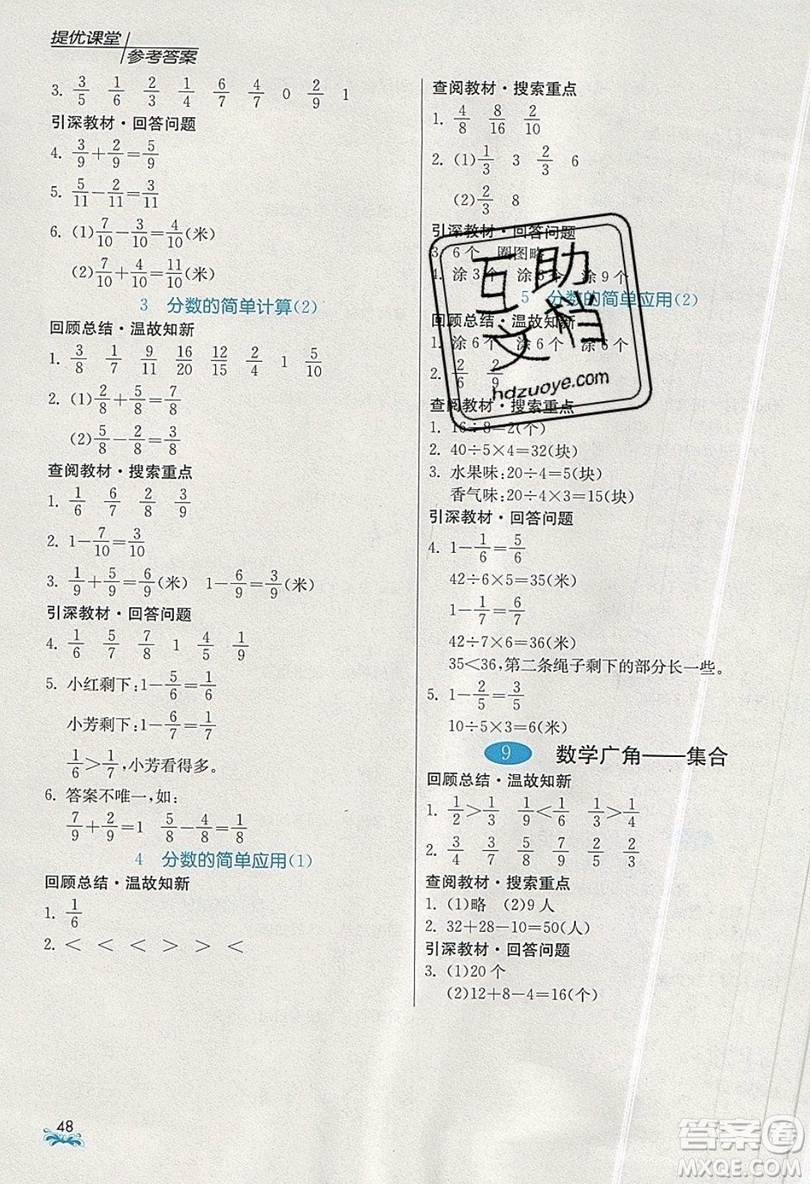 提优课堂
参考答案
3. 3/5 1/6 3/5 1/4 6/7 4/7 0 2/9 1
引深教材·回答问题
4. 3/9+2/9=5/9
5. 5/11-2/11=3/11
6. (1)7/10-3/10=4/10(米)
(2)7/10+4/10=11/10(米)
3 分数的简单计算(2)
回顾总结·温故知新
1. 3/8 1/7 9/17 16/20 12/15 2/4 1 5/10
2. (1)2/8+5/8=7/8
(2)5/8-2/8=3/8
查阅教材·搜索重点
1. 1/6 6/7 2/8 3/9
2. 1-7/10=3/10
3. 1/9+5/9=6/9(米) 1-6/9=3/9(米)
引深教材·回答问题
4. 1/6 5/7 7/8 1 4/5 1/9
5. 小红剩下:1-5/6=1/6
小芳剩下:1-6/7=1/7
1/6>1/7,小芳看得多。
6. 答案不唯一,如:
7/9+2/9=1 5/8-4/8=1/8
4 分数的简单应用(1)
回顾总结·温故知新
1. 1/6
2. < < < > > <
48
查阅教材·搜索重点
1. 4/8 8/16 2/10
2. (1)1/3 3 2/3 6
(2)2/3 8
引深教材·回答问题
3. 6个 圈图略
4. 涂3个 涂8个 涂9个
5 分数的简单应用(2)
回顾总结·温故知新
1. 涂6个 涂6个 涂6个
2. 2/6 2/9
查阅教材·搜索重点
1. 16÷8=2(个)
2. 40÷5×4=32(块)
3. 水果味:20÷4=5(块)
香气味:20÷4×3=15(块)
引深教材·回答问题
4. 1-1/6=5/6
42÷6×5=35(米)
1-1/7=6/7
42÷7×6=36(米)
35<36,第二条绳子剩下的部分长一些。
5. 1-2/5=3/5
10÷5×3=6(米)
9 数学广角——集合
回顾总结·温故知新
1. 1/2>1/3 1/3<1/2 1/3>1/4
2. 3/4 2/3 5/8 4/6 2/4 3/9
查阅教材·搜索重点
1. (1)略 (2)9人
2. 32+28-10=50(人)
引深教材·回答问题
3. (1)20个
(2)12+8-4=16(个)
互助
文档
hdzuoye.com
答案圈
MXQE.COM